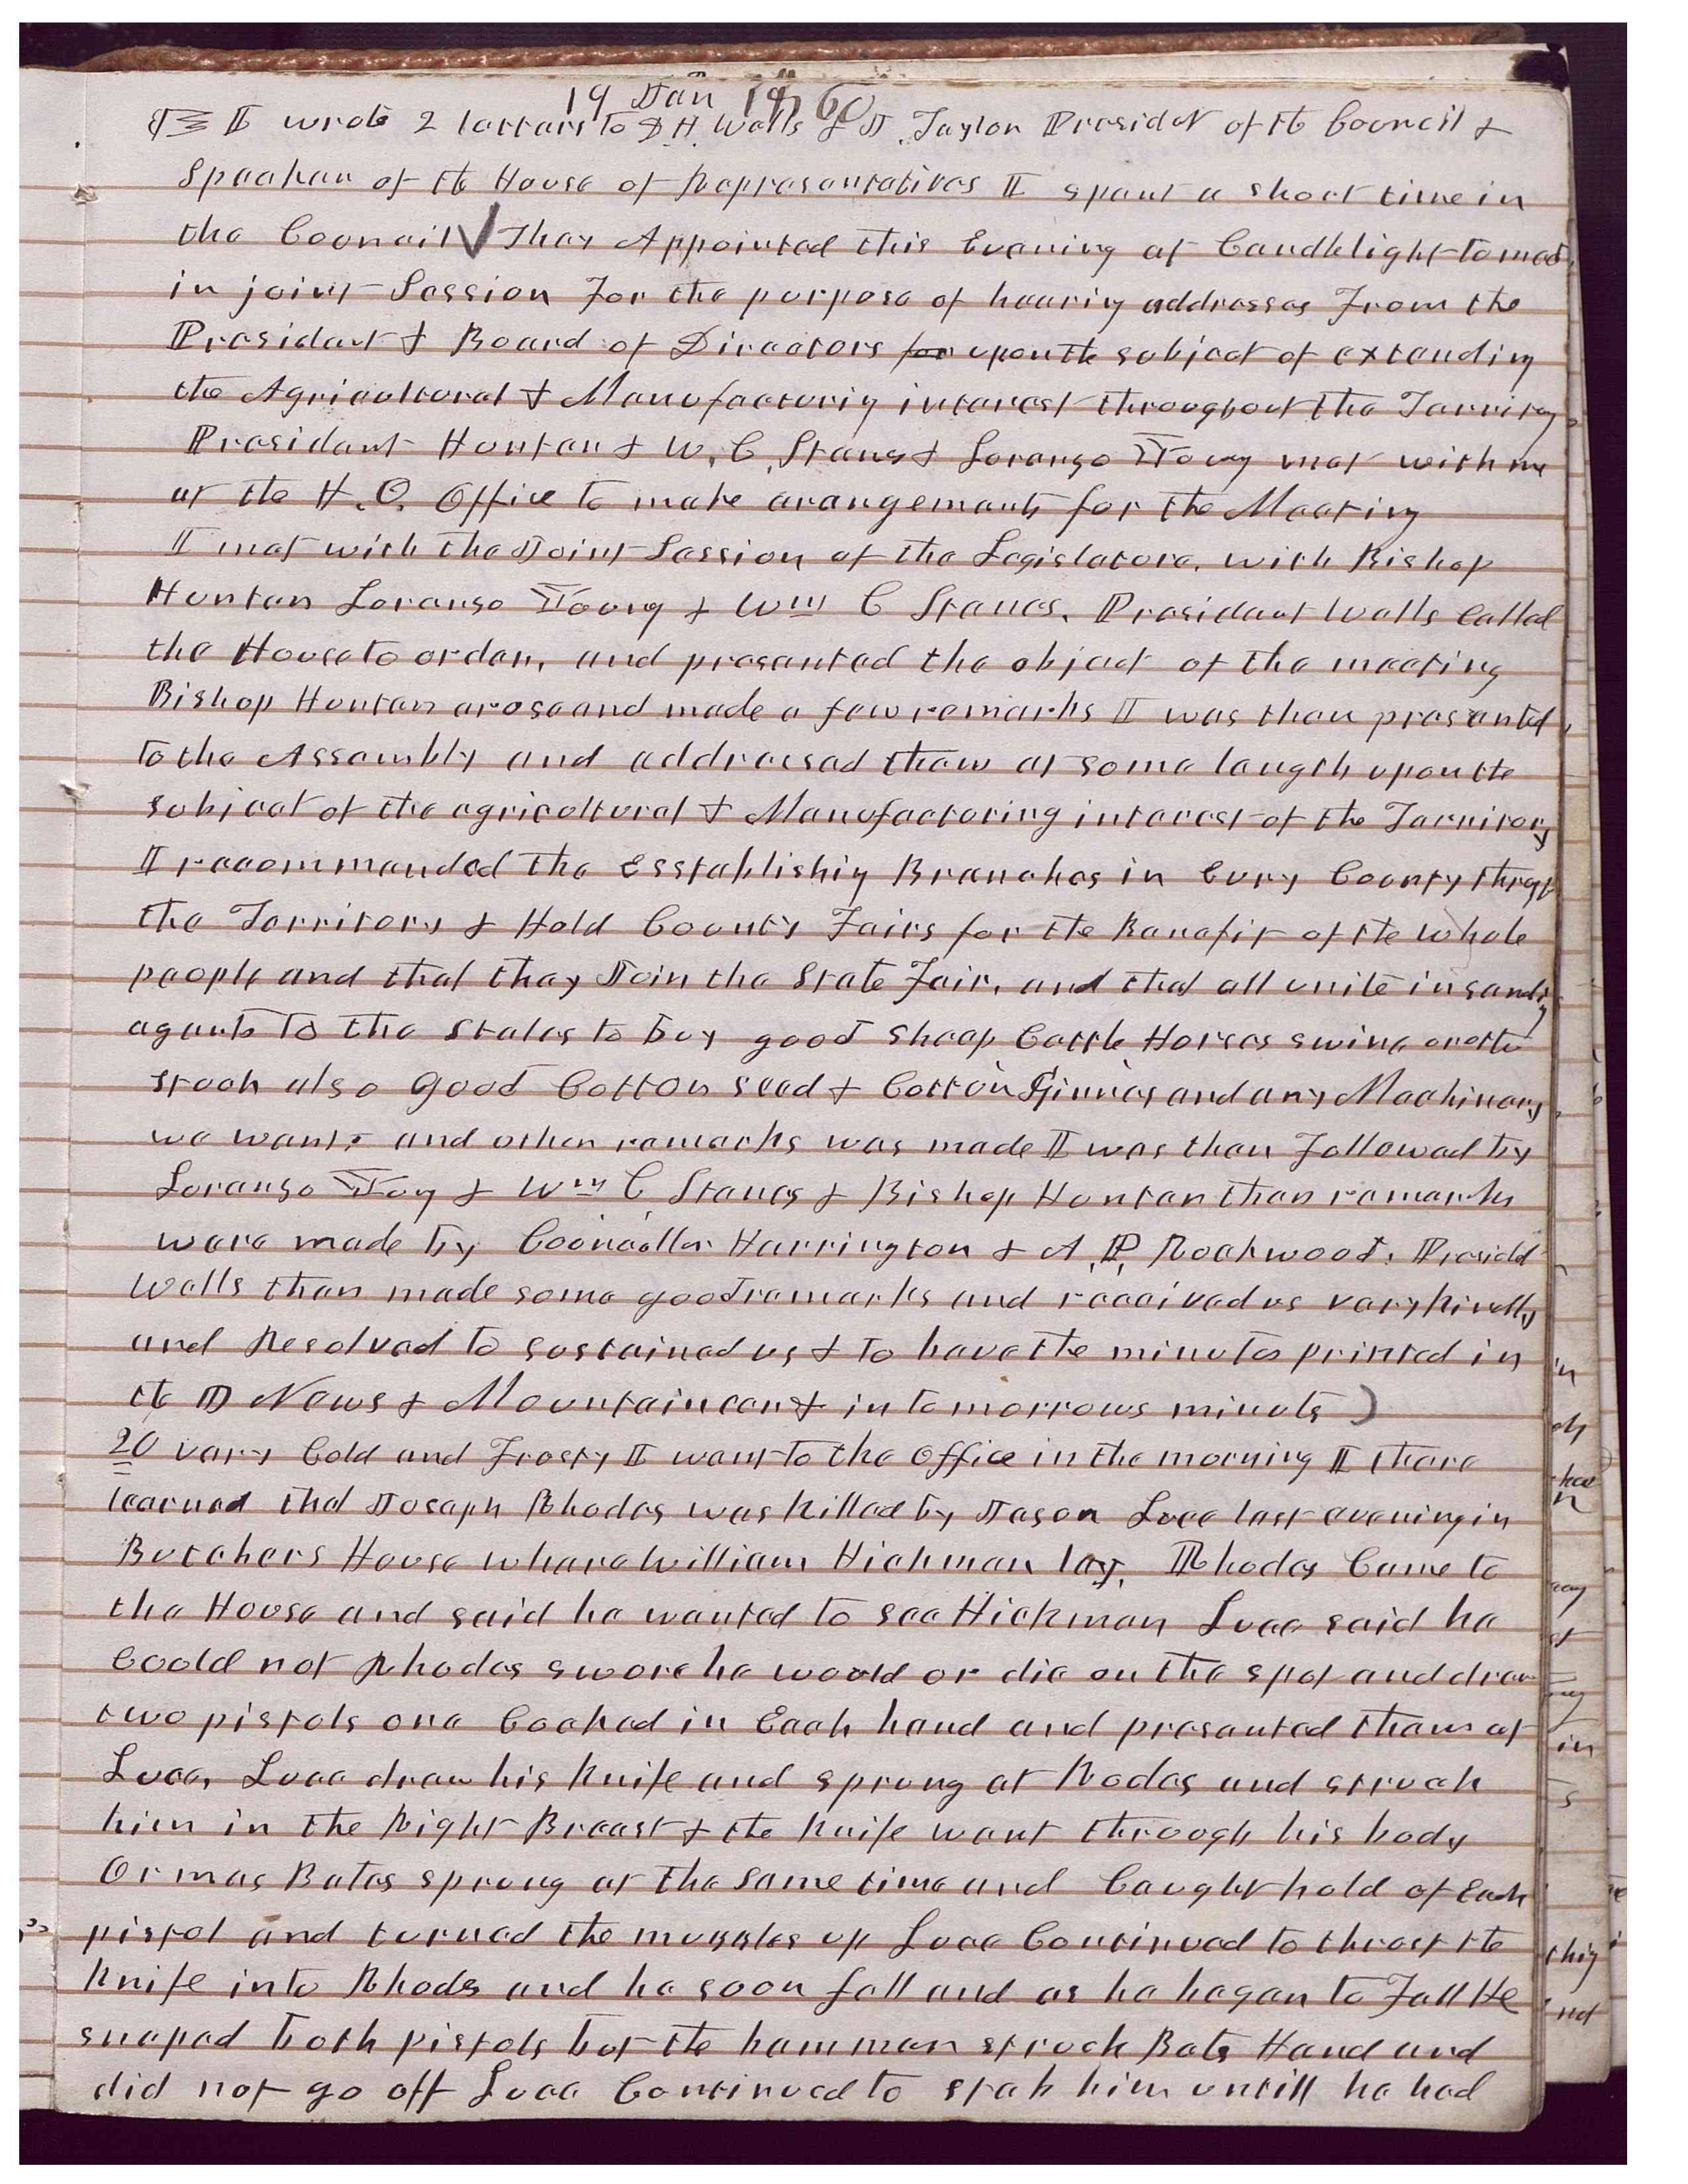 19 Jan 1860
I wrote 2 letters to D. H. Wells & J. Taylor President of the Council &
Speaker of the House of Representatives I spent a short time in
the Council They Appointed this Evening at Candlelight to meet
in joint Session for the purpose of hearing addresses from the
President & Board of Directors for upon the subject of extending
the Agricultural & Manufacturing interest throughout the Territory
President Hunter & W. C. Staines & Lorenzo Young met with me
at the H. O. Office to make arangements for the Meeting
I met with the Joint Session of the Legislature, with Bishop
Hunter Lorenzo Young & Wm C Staines. President Wells Called
the House to order, and presented the object of the meeting
Bishop Hunter arose and made a few remarks I was then presented
to the Assembly and addressed them at some length upon the
subject of the agricultural & Manufactoring interest of the Territory
I recommended the Esstablishig Branches in Evry County through
the Territory & Hold County Fairs for the Benefit of the whole
people and that they Join the State Fair, and that all unite in sending
agents to the States to buy good Sheep Cattle Horses swine or other
stock also good Cotton seed & Cotton Ginnes and any Machinery
we want. and other remarks was made I was then Followed by
Lorenzo Young & Wm C Staines & Bishop Hunter then remarks
were made by Councellor Harrington & A. P. Rockwood. Presidet
Wells then made some good remarks and received us very kindly
and Resolved to sustained us & to have the minutes printed in
the D News & Mountaineer & in tomorrows minuts)
20 very Cold and Frosty I went to the office in the morning I there
learned that Joseph Rhodes was killed by Jason Luce last evening in
Butchers House where William Hickman lay. Rhodes Came to
the House and said he wanted to see Hickman Luce said he
Could not Rhodes swore he would or die on the spot and drew
two pistols one Cocked in Each hand and presented them at
Luce, Luce drew his knife and sprung at Rodes and struck
him in the Right Breast & the knife went through his body
Ormas Bates sprung at the same time and Caught hold of Each
pistol and turned the muzzles up Luce Continued to thrust the
knife into Rhods and he soon fell and as he began to Fall He
snaped both pistols but the hammer struck Bats Hand and
did not go off Luce Continued to stab him untill he had